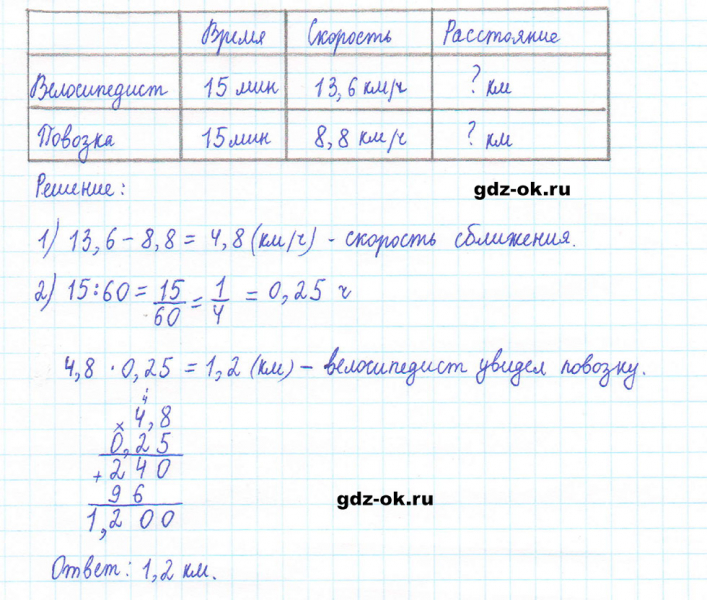 Время Скорость Расстояние
Велосипедист 15 мин 13,6 км/ч ? км
Повозка 15 мин 8,8 км/ч ? км
Решение:
gdz-ok.ru
1) 13,6 - 8,8 = 4,8 (км/ч) - скорость сближения.
2) 15:60 = 15/60 = 1/4 = 0,25 ч
4,8 · 0,25 = 1,2 (км) - велосипедист увидел повозку.
4
× 4,8
0,25
+ 240
96
gdz-ok.ru
1,200
Ответ: 1,2 км.